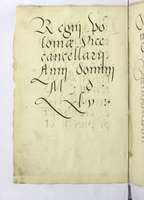 Regni Po-
loniæ Vice
cancellarij
Anni domini
M D
XXlv